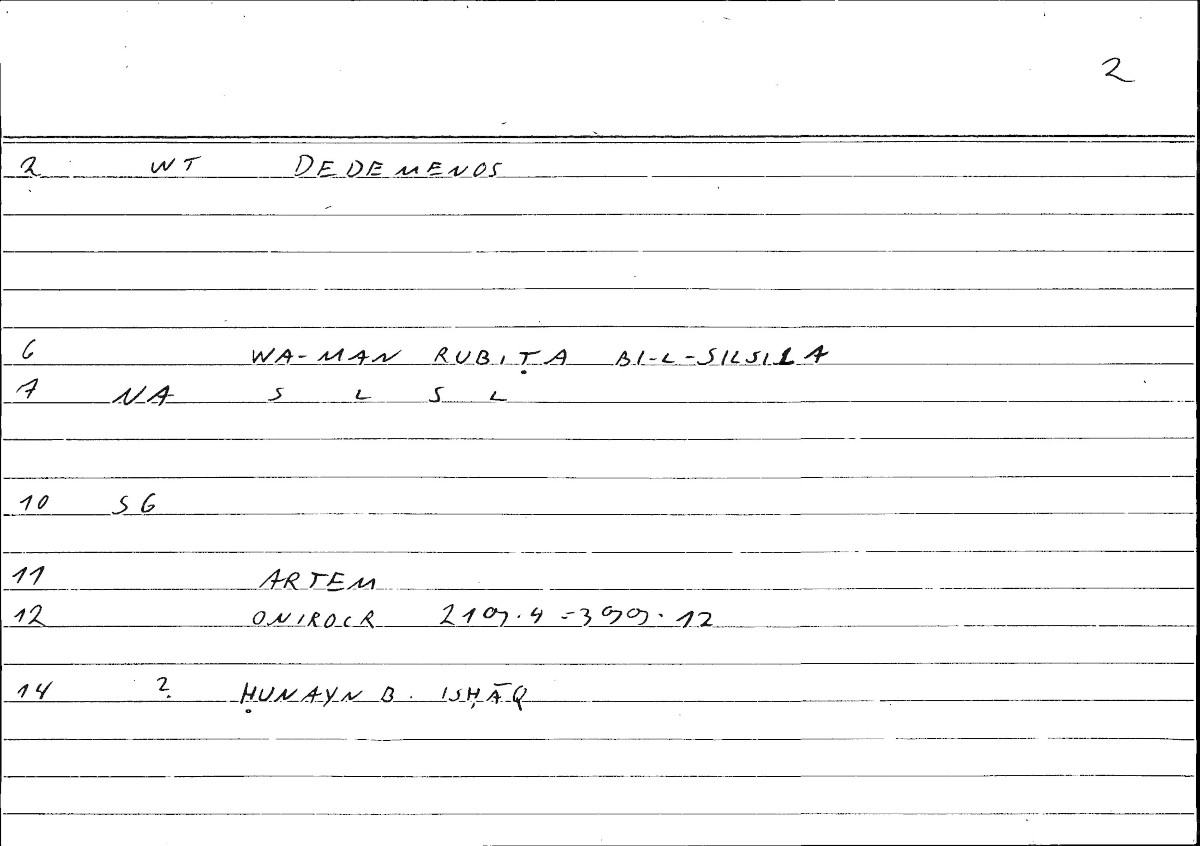 2
2 WT DEDEMENOS
6 WA-MAN RUBIṬA BI-L-SILSILA
7 NA S L S L
10 SG
11 ARTEM
12 ONIROCR 219,.4 = 399,.12
14 2. ḤUNAYN B. ISḤĀQ